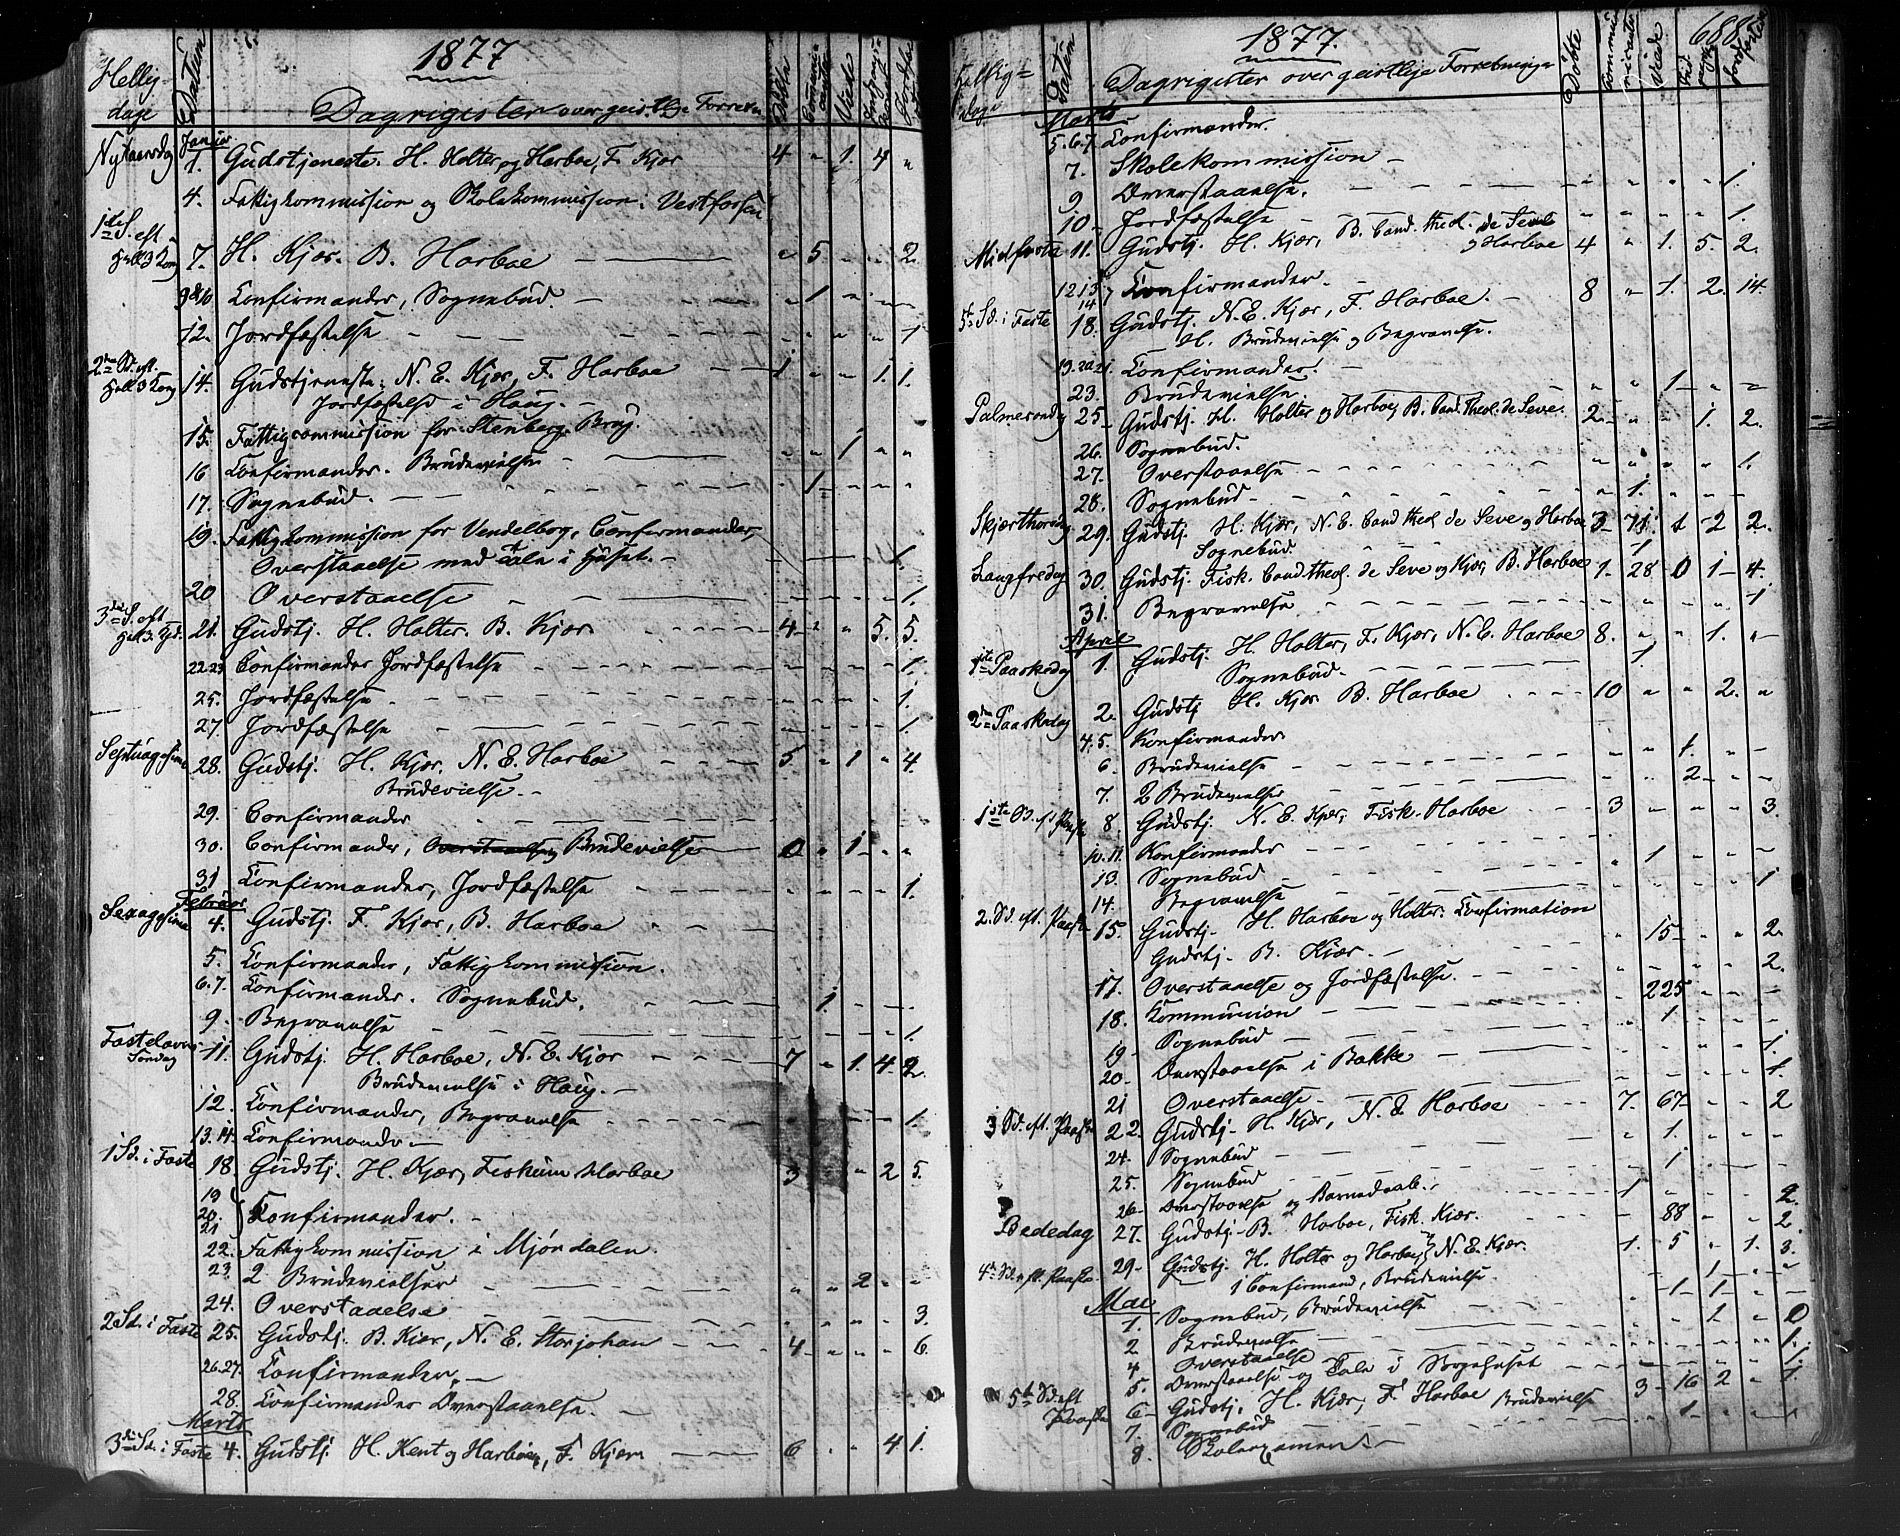 1877
Hellig-
dage
Datum
Dagregister over geistlige Forretn
Døbte
Viede
Januar
Nytaarsdag 1. Gudstjeneste. H. Holter og Harboe, F. Kjær 4 " 1. 4 "
4. Fattigkommission og Skolekommission i Vestfossen
1ste S. eft.
Hell 3 Kong 7. H. Kjær. B. Harboe — " 5 " " 2.
9 & 10 Confirmander, Sognebud — " 1 " " "
12. Jordfæstelse " " " " 1
2den Sd. eft.
Hell 3 Kong 14. Gudstjeneste: N. E. Kjær, F. Harboe 1 " " 1. 1.
Jordfæstelse i Haug. —
15. Fattigcommission for Stenberg Brug.
16 Confirmander. Brudevielse — " " 1 " "
17. Sognebud. — " 1 " " "
19. Fattigkommission for Vendelborg, Confirmander,
Overstaaelse med Tale i Huset. — 1.
20 Overstaaelse 1.
3die S. eft
Hell 3. Kgd. 21. Gudstj. H. Holter. B. Kjær 4 " " 5. 5.
22.23 Confirmander Jordfæstelse 1.
25. Jordfæstelse 1.
27. Jordfæstelse 1.
Septuagesima 28. Gudstj. H. Kjær. N. E. Harboe 5 " 1 " 4.
Brudevielse. —
29. Confirmander
30. Confirmander, Overstaaelse Brudevielse 0 " 1 " "
31 Confirmander, Jordfæstelse 1.
Februar
Sexagesima 4. Gudstj. F. Kjær, B. Harboe
5. Confirmander, Fattigkommission.
6.7. Confirmander. Sognebud. 1.
9. Begravelse 1.
Fastelavns
Søndag 11. Gudstj. H. Harboe, N. E. Kjær 7 " 1. 4 2.
Brudevielse i Haug. —
12. Confirmander, Begravelse 1.
13.14. Confirmandr —
1 Sd. i Faste 18 Gudstj. H. Kjær, Fiskum Harboe 3 " 2 5.
19
20.
21 Confirmander. —
22. Fattigkommission i Mjøndalen.
23. 2 Brudevielser " " 2 " "
24. Overstaaelse 3.
2 Sd. i Faste 25. Gudstj. B. Kjær, N. E. Storjohan 4 " " " 6.
26.27. Confirmander. —
28. Confirmander Overstaaelse. —
Marts
3die Sd. i Faste 4. Gudstj H. Kent og Harboe, F. Kjær 6 . 4 1.
1877.
688
Hellig=
dage
Datum
Dagregister over geistlige Forretninger
Døbte
Viede
Marts
5.6.7. Confirmander.
7. Skolekommission —
9 Overstaaelse. " " " " 1.
10 Jordfæstelse " " " " 1.
Midfaste 11. Gudstj. H. Kjær, B. Cand. theol. de Seve
og Harboe 4 " 1. 5 2.
12 13
14 Confirmander. —
5te Sd. i Faste 18. Gudstj. N. E. Kjær, F. Harboe. — 8 " 1. 2. 14.
H. Brudevielse og Begravelse.
19.20.21. Confirmander. —
23. Brudevielse. " " 1 — " —
Palmesøndag 25 Gudstj. H. Holter og Harboe, B. Cand. theol. de Seve. 2 " " 1. 2.
26. Sognebud.
27. Overstaaelse 1.
28. Sognebud — " 1. " " "
Skjærthorsdag 29. Gudstj. H. Kjær, N. E. Cand theol de Seve og Harboe 3 71. 1 2 2.
Sognebud. 1
Langfredag 30. Gudstj. Fisk. Cand. theol. de Seve og Kjær, B. Harboe 1 28 0 1 4.
31. Begravelse 1
April
1ste Paaskedag 1. Gudstj. H. Holter, F. Kjær, N. E. Harboe 8. " " 1. "
Sognebud. 1.
2den Paaskedag 2. Gudstj H. Kjær B. Harboe 10 " " 2. "
4.5. Konfirmander
6. Brudevielse " " 1. " —
7. 2 Brudevielser " " 2 — " —
1ste Sd. eft Paaske 8. Gudstj. N. E. Kjær, Fisk. Harboe 3 " " " 3.
10.11. Konfirmander
13. Sognebud — " 1 " " "
14. Begravelse 1
2. Sd. eft. Paaske 15. Gudstj. H. Harboe og Holter. Confirmation
Gudstj. B. Kjær. — " 15 " " 2.
17. Overstaaelse og Jordfæstelse. 2.
18. Kommunion — 225
19 Sognebud — 1
20 Overstaaelse i Bakke 1.
21 Overstaaelse. 1.
3 Sd. eft. Paaske 22. Gudstj. H. Kjær, N. E Harboe 7. 67 2
24. Sognebud — 1.
25. Sognebud 1
26 Overstaaelse og Barnedaab. 1 2.
Bededag 27. Gudstj. B. Harboe, Fisk. Kjær. 88 2
4de Sd. eft. Paaske 29 Gudstj. H. Holter og Harboe, N. E. Kjær. 1. 5 " 1. 3.
1 Confirmand, Brudevielse. 1
Mai
1. Sognebud, Brudevielse 1 1
2 Brudevielse 1 0
4 Overstaaelse 1.
5. Overstaaelse og Tale i Sørgehuset 1.
5te Sd. eft
Paaske 6 Gudstj. H. Kjær, F. Harboe Brudevielse 3 16 2 " 1.
7. Sognebud 1
8. Skoleexamen —